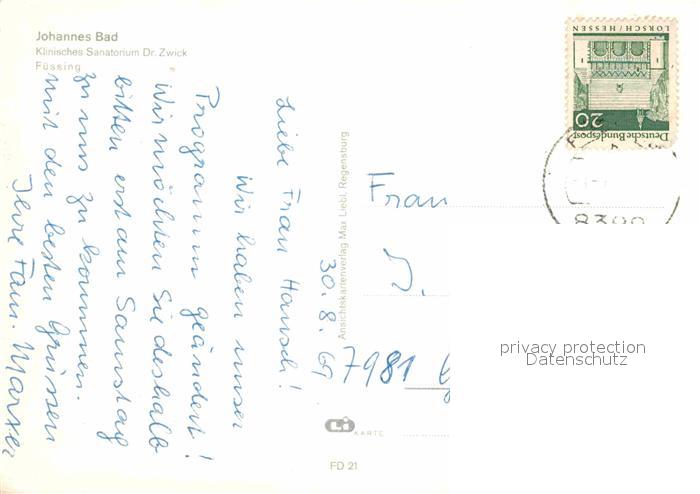 Johannes Bad
Klinisches Sanatorium Dr. Zwick
Füssing
30. 8. 69
Liebe Frau Hansch!
Wir haben unser
Programm geändert!
Wir möchten Sie deshalb
bitten erst am Samstag
zu uns zu kommen.
Mit den besten Grüssen
Ihre Fam. Marxer
Ansichtskartenverlag Max Liebl, Regensburg
Li KARTE
FD 21
LORSCH/HESSEN
20
Deutsche Bundespost
8399
Frau
J.
7981
privacy protection
Datenschutz